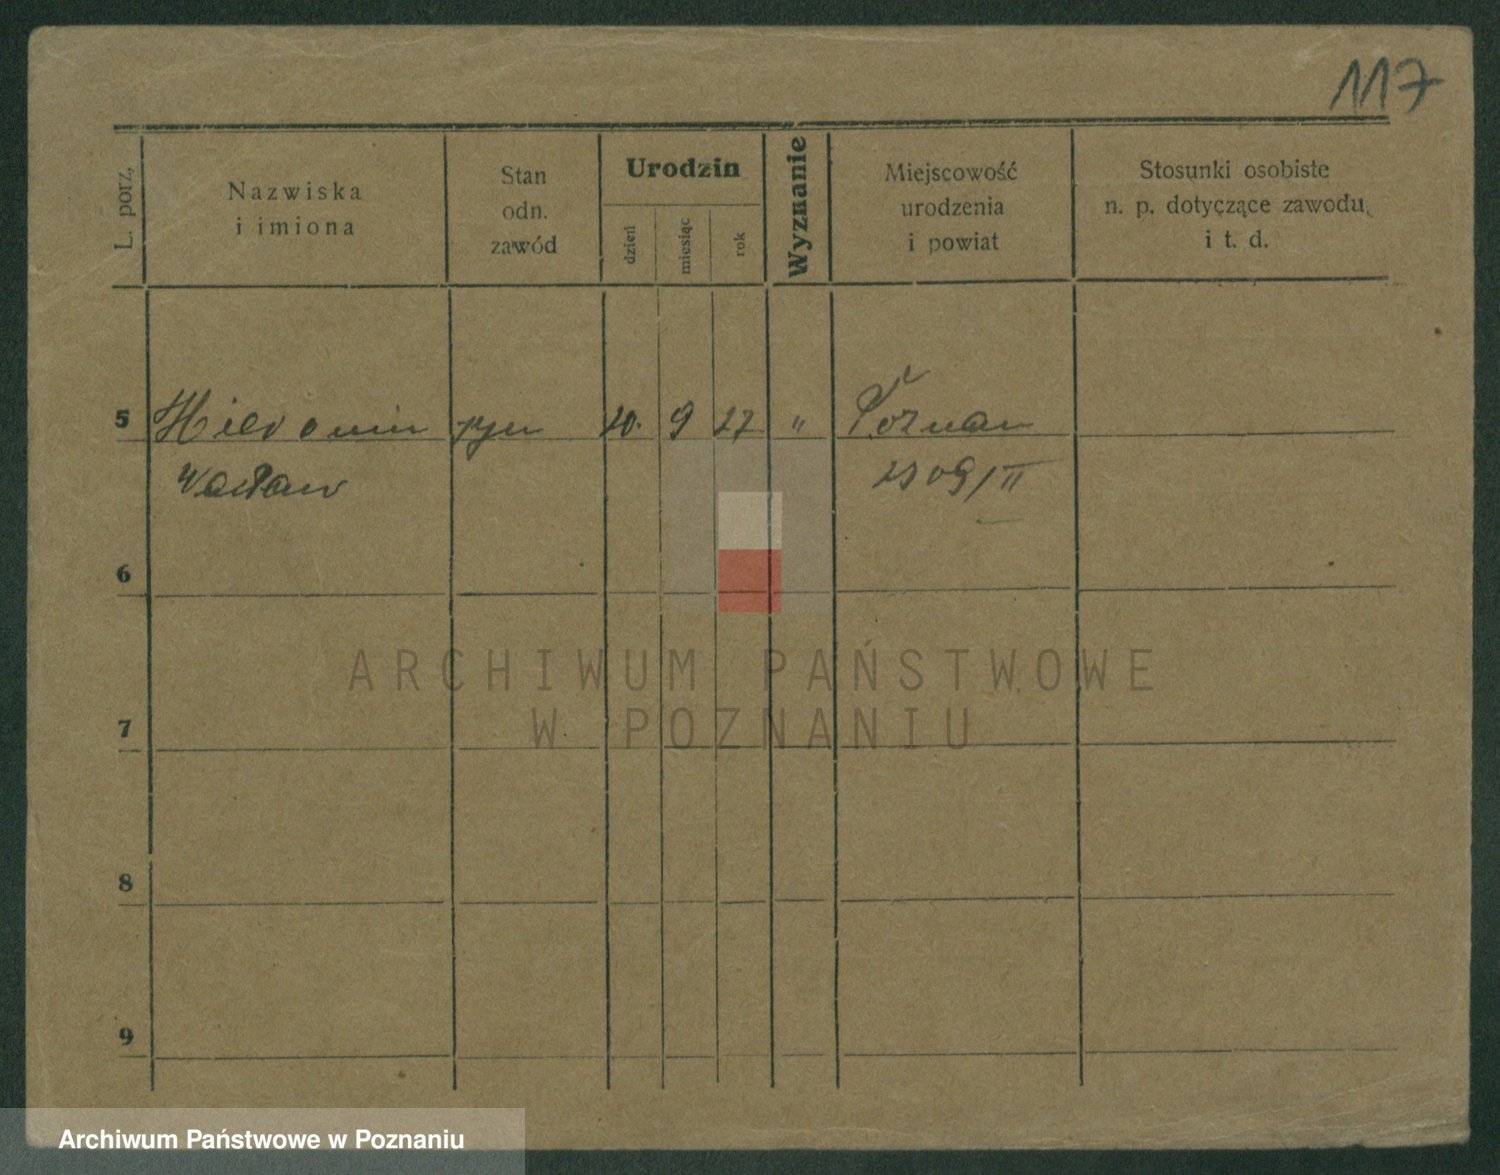 117
L. porz.
Nazwiska
i imiona
Stan
odn.
zawód
Urodzin
dzień
miesiąc
rok
Wyznanie
Miejscowość
urodzenia
i powiat
Stosunki osobiste
n. p. dotyczące zawodu,
i t. d.
5 Hieronim syn 20. 9 27 " Poznań
Wacław 2909/II
6
7
8
9
ARCHIWUM PAŃSTWOWE
W POZNANIU
Archiwum Państwowe w Poznaniu